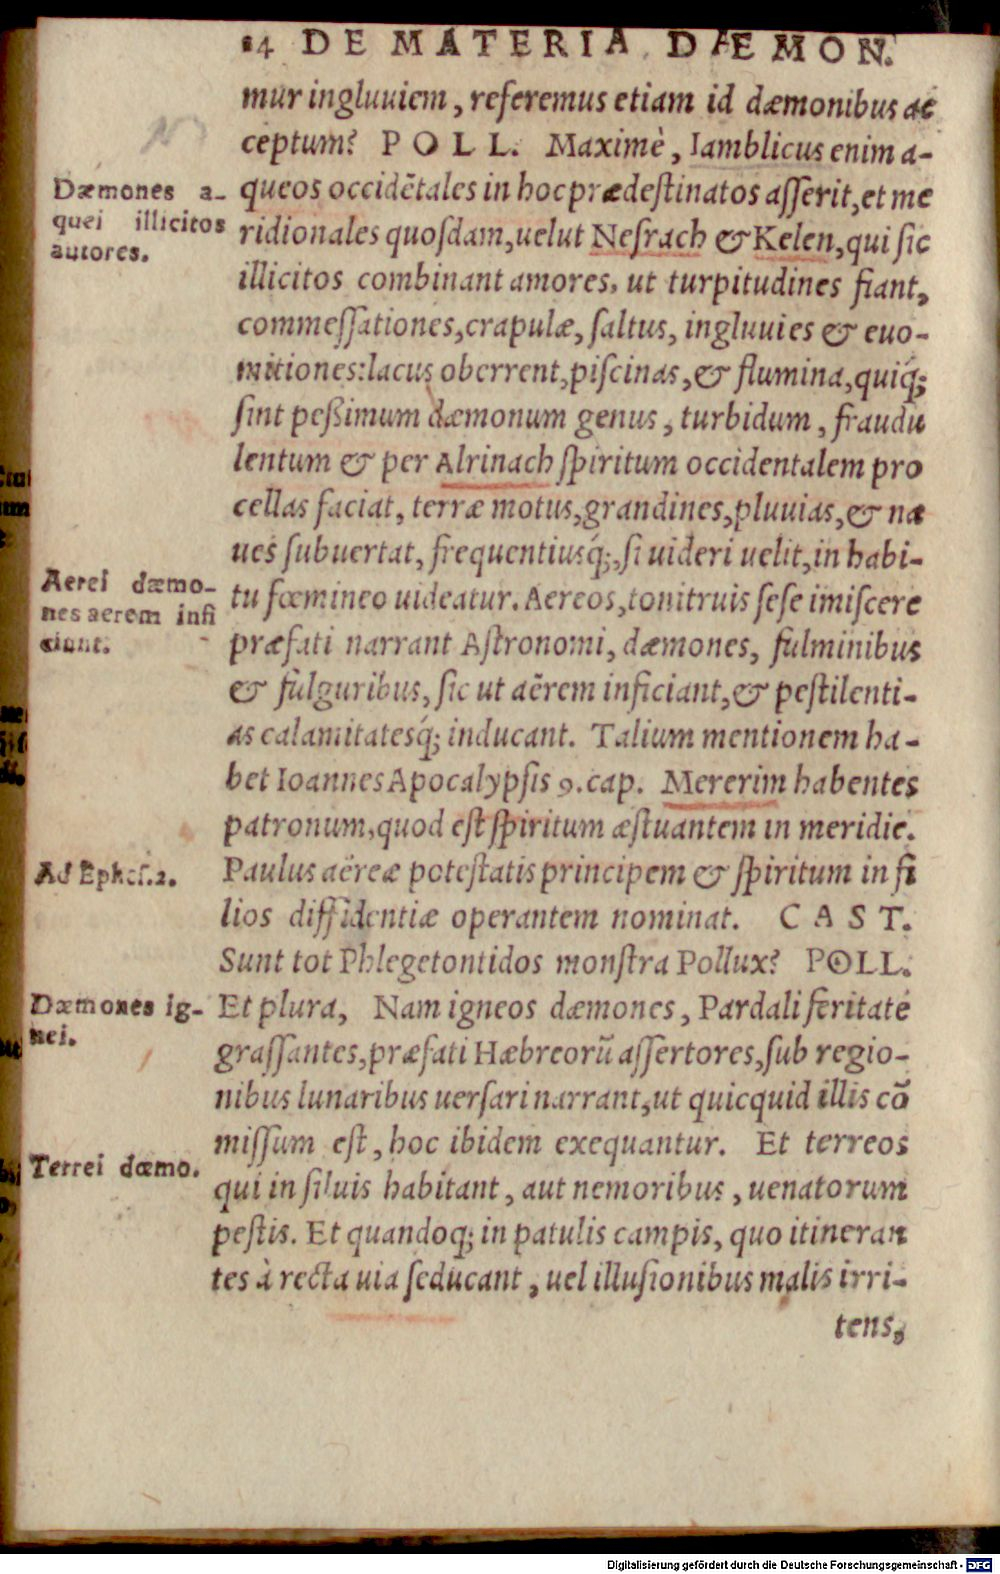 14 DE MATERIA DÆMON.
mur ingluuiem, referemus etiam id dæmonibus ac
ceptum? POLL. Maximè, Iamblicus enim a-
Dæmones a-
quei illicitos
autores.
queos occidẽtales in hoc prædestinatos asserit, et me
ridionales quosdam, uelut Nesrach & Kelen, qui sic
illicitos combinant amores, ut turpitudines fiant,
commessationes, crapulæ, saltus, ingluuies & euo-
mitiones: lacus oberrent, piscinas, & flumina, quiq́;
sint peßimum dæmonum genus, turbidum, fraudu
lentum & per Alrinach spiritum occidentalem pro
cellas faciat, terræ motus, grandines, pluuias, & na
ues subuertat, frequentiusq́;, si uideri uelit, in habi-
Aerei dæmo-
nes aerem infi
ciunt.
tu fœmineo uideatur. Aereos, tonitruis sese imiscere
præfati narrant Astronomi, dæmones, fulminibus
& fulguribus, sic ut aẽrem inficiant, & pestilenti-
as calamitatesq́; inducant. Talium mentionem ha-
bet Ioannes Apocalypsis 9. cap. Mererim habentes
patronum, quod est spiritum æstuantem in meridie.
Ad Ephes. 2.
Paulus aëreæ potestatis principem & spiritum in fi
lios diffidentiæ operantem nominat. CAST.
Sunt tot Phlegetontidos monstra Pollux? POLL.
Dæmones ig-
nei.
Et plura, Nam igneos dæmones, Pardali feritate
grassantes, præfati Hæbreorũ assertores, sub regio-
nibus lunaribus uersari narrant, ut quicquid illis cõ
missum est, hoc ibidem exequantur. Et terreos
Terrei dæmo.
qui in siluis habitant, aut nemoribus, uenatorum
pestis. Et quandoq; in patulis campis, quo itineran
tes à recta uia seducant, uel illusionibus malis irri-
tens,
Digitalisierung gefördert durch die Deutsche Forschungsgemeinschaft - DFG